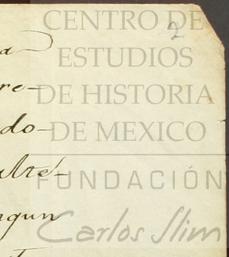 CENTRO DE
2
ESTUDIOS
re-
DE HISTORIA
do-
DE MEXICO
FUNDACIÓN
Carlos Slim